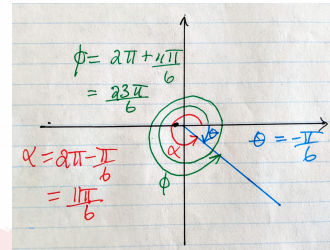 ϕ = 2π + 11π/6
= 23π/6
θ = -π/6
θ
α
α = 2π - π/6
= 11π/6
ϕ